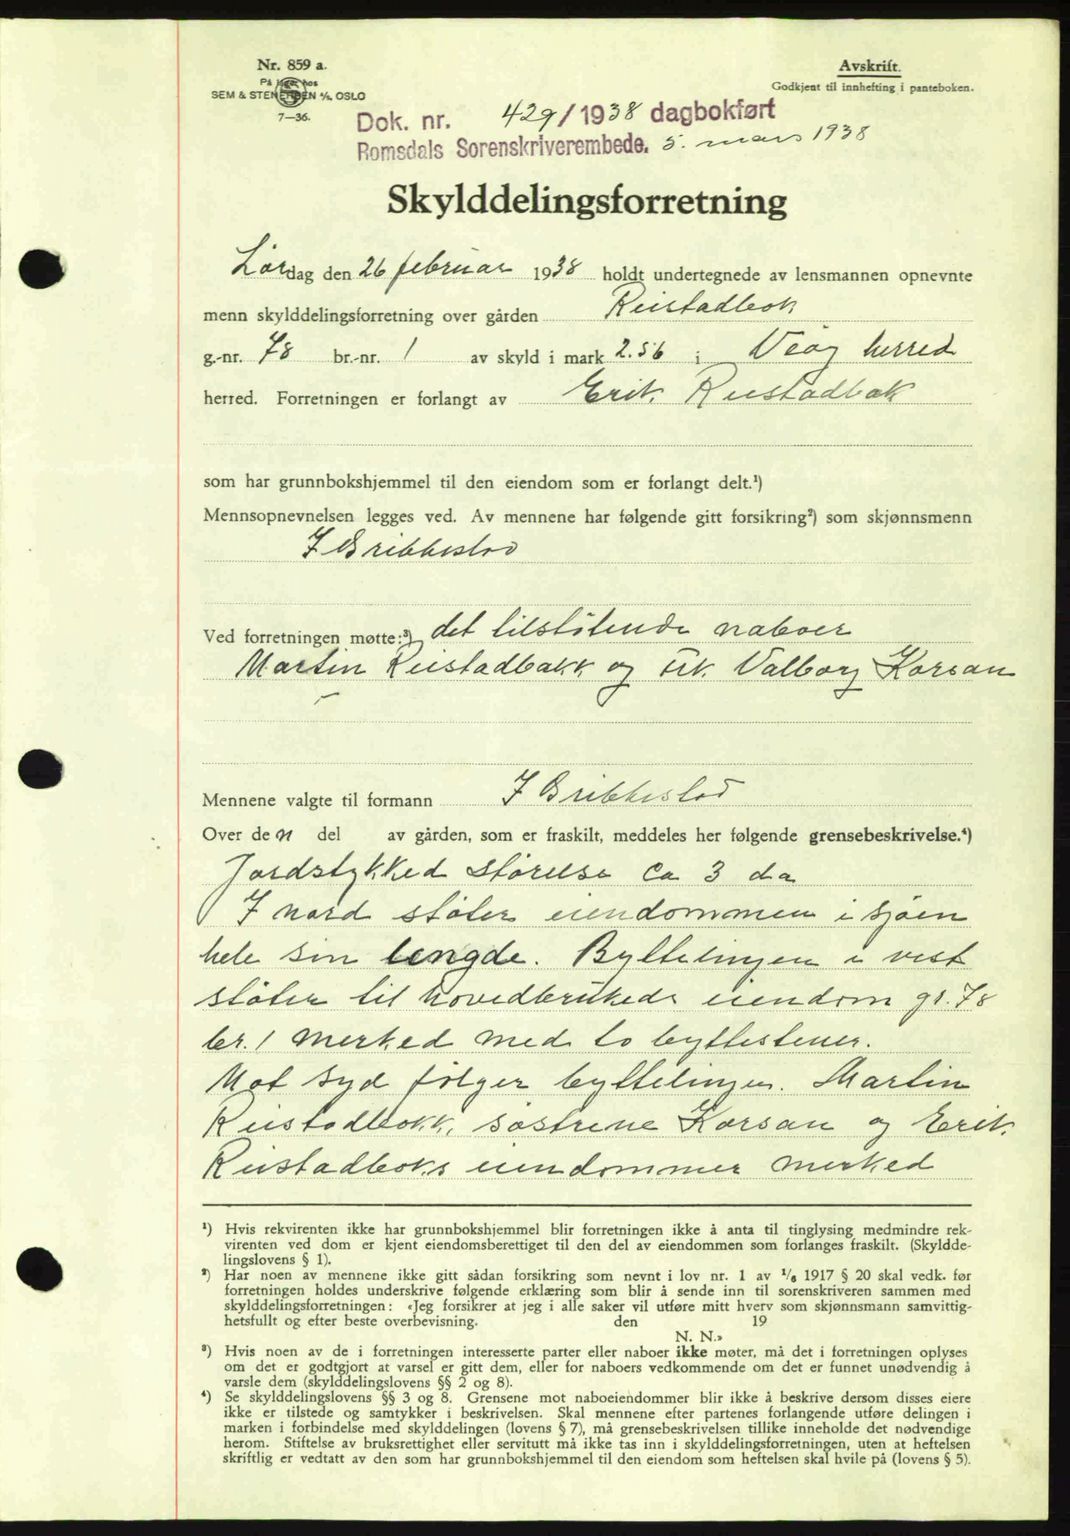 Nr. 859 a.
På lager hos
SEM & STENERSEN A/S, OSLO
7—36.
Avskrift.
Godkjent til innhefting i panteboken.
Dok. nr. 429/1938 dagbokført
Romsdals Sorenskriverembede. 5. mars 1938
Skylddelingsforretning
Lørdag den 26 februar 1938 holdt undertegnede av lensmannen opnevnte
menn skylddelingsforretning over gården Reistadbok
g.-nr. 78 br.-nr. 1 av skyld i mark 2.56 i Veøy herred
herred. Forretningen er forlangt av Erik Reistadbak
som har grunnbokshjemmel til den eiendom som er forlangt delt.¹)
Mennsopnevnelsen legges ved. Av mennene har følgende gitt forsikring²) som skjønnsmenn
I Gribbestad
Ved forretningen møtte:³) det tilstøtende naboer
Martin Reistadbakk og frk. Valborg Korsan
Mennene valgte til formann I Gribbestad
Over den del av gården, som er fraskilt, meddeles her følgende grensebeskrivelse.⁴)
Jordstykked størelse ca 3 da
I nord støter eiendommen i sjøen
hele sin lengde. Byttelingen i vest
støter til hovedbrukeds eiendom gr. 78
br. 1 merked med to byttestener.
Mot syd følger byttelingen. Martin
Reistadbokk, søstrene Korsan og Erik
Reistadboks eiendommer merked
¹) Hvis rekvirenten ikke har grunnbokshjemmel blir forretningen ikke å anta til tinglysing medmindre rek-
virenten ved dom er kjent eiendomsberettiget til den del av eiendommen som forlanges fraskilt. (Skyldde-
lingslovens § 1).
²) Har noen av mennene ikke gitt sådan forsikring som nevnt i lov nr. 1 av ¹/₆ 1917 § 20 skal vedk. før
forretningen holdes underskrive følgende erklæring som blir å sende inn til sorenskriveren sammen med
skylddelingsforretningen: «Jeg forsikrer at jeg i alle saker vil utføre mitt hverv som skjønnsmann samvittig-
hetsfullt og efter beste overbevisning. den 19
N. N.»
³) Hvis noen av de i forretningen interesserte parter eller naboer ikke møter, må det i forretningen oplyses
om det er godtgjort at varsel er gitt dem, eller for naboers vedkommende om det er funnet unødvendig å
varsle dem (skylddelingslovens §§ 2 og 8).
⁴) Se skylddelingslovens §§ 3 og 8. Grensene mot naboeiendommer blir ikke å beskrive dersom disses eiere
ikke er tilstede og samtykker i beskrivelsen. Skal mennene efter partenes forlangende utføre delingen i
marken i forbindelse med skylddelingen (lovens § 7), må grensebeskrivelsen tillike inneholde det nødvendige
herom. Stiftelse av bruksrettighet eller servitutt må ikke tas inn i skylddelingsforretningen, uten at heftelsen
skriftlig er vedtatt av den som har grunnbokshjemmel til den eiendom som heftelsen skal hvile på (lovens § 5).